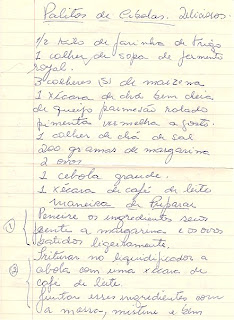 Palitos de Cebolas. Deliciosos.
1/2 kilo de farinha de trigo
1 colher de sopa de fermento
royal.
3 colheres (s) de maizena
1 xícara de chá bem cheia
de queijo parmesão ralado
pimenta vermelha a gosto.
1 colher de chá de sal
200 gramas de margarina
2 ovos
1 cebola grande.
1 xícara de café de leite
maneira de Preparar
① Peneire os ingredientes secos
junte a margarina e os ovos
batidos ligeiramente.
② Triturar no liquidificador a
cebola com uma xícara de
café de leite.
Juntar esses ingredientes com
a massa, misture e